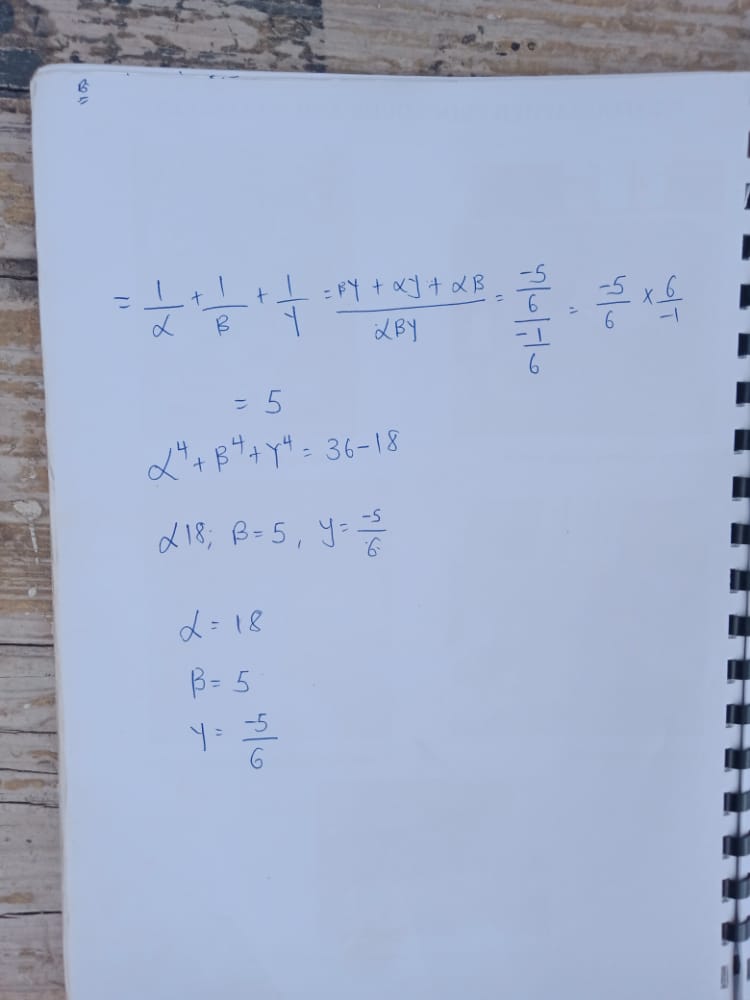 B
= 1/α + 1/β + 1/γ = βγ + αγ + αβ / αβγ = -5/6 / -1/6 = -5/6 × 6/-1
= 5
α⁴ + β⁴ + γ⁴ = 36-18
α18; β=5, γ= -5/6
α = 18
β = 5
γ = -5/6